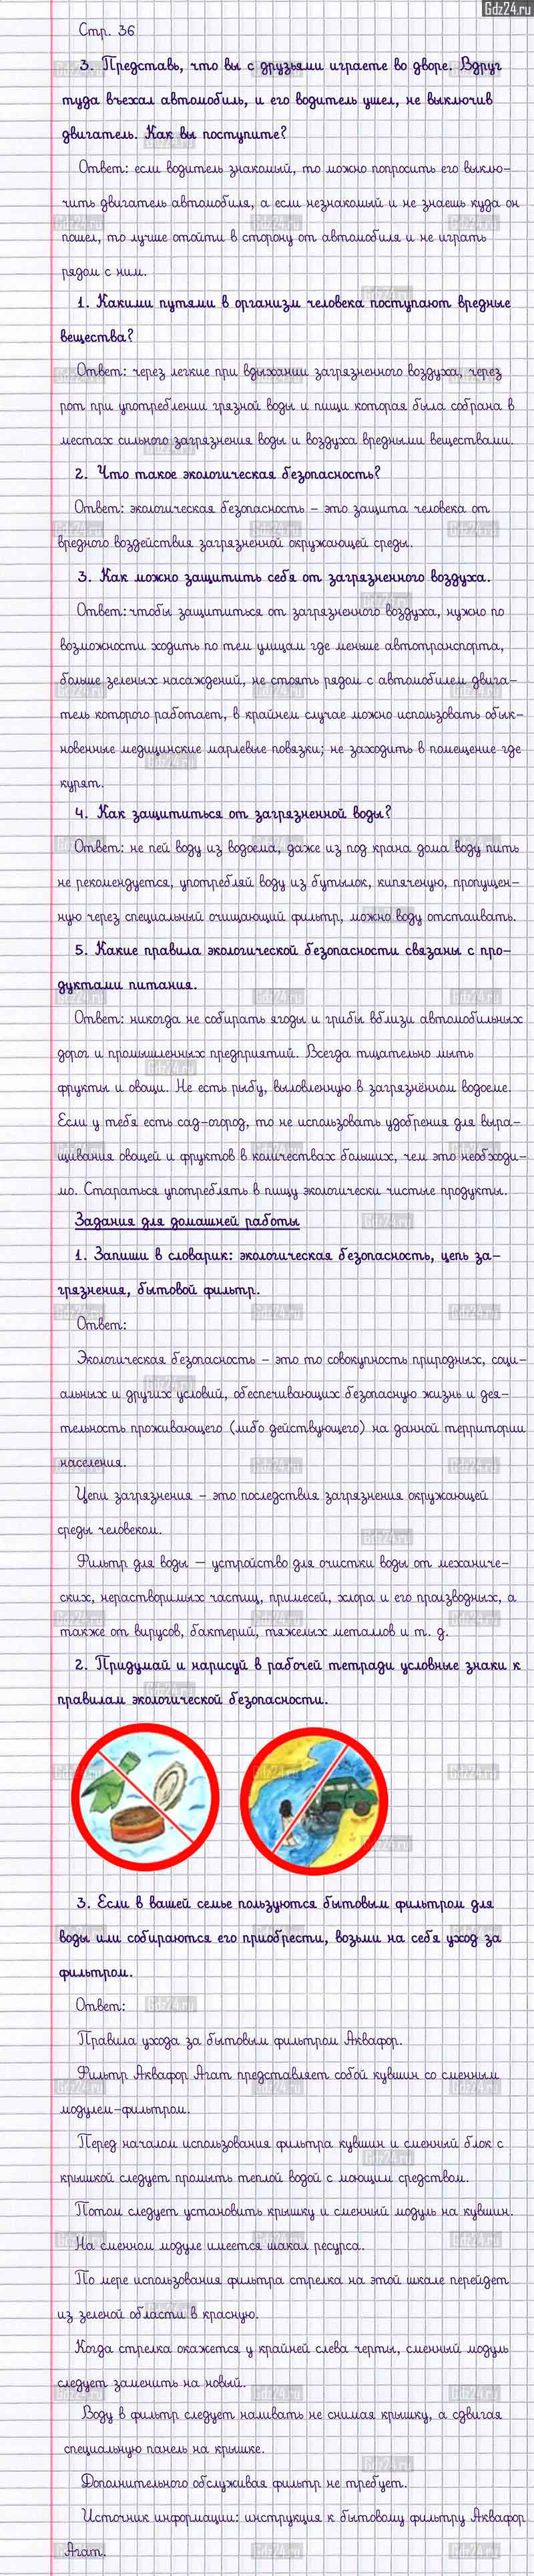 Gdz24.ru
Стр. 36
3. Представь, что вы с друзьями играете во дворе. Вдруг
туда въехал автомобиль, и его водитель ушел, не выключив
двигатель. Как вы поступите?
Ответ: если водитель знакомый, то можно попросить его выклю-
чить двигатель автомобиля, а если незнакомый и не знаешь куда он
пошел, то лучше отойти в сторону от автомобиля и не играть
рядом с ним.
1. Какими путями в организм человека поступают вредные
вещества?
Ответ: через легкие при вдыхании загрязненного воздуха, через
рот при употреблении грязной воды и пищи которая была собрана в
местах сильного загрязнения воды и воздуха вредными веществами.
2. Что такое экологическая безопасность?
Ответ: экологическая безопасность – это защита человека от
вредного воздействия загрязненной окружающей среды.
3. Как можно защитить себя от загрязненного воздуха.
Ответ: чтобы защититься от загрязненного воздуха, нужно по
возможности ходить по тем улицам где меньше автотранспорта,
больше зеленых насаждений, не стоять рядом с автомобилем двига-
тель которого работает, в крайнем случае можно использовать обык-
новенные медицинские марлевые повязки; не заходить в помещение где
курят.
4. Как защититься от загрязненной воды?
Ответ: не пей воду из водоема, даже из под крана дома воду пить
не рекомендуется, употребляй воду из бутылок, кипяченую, пропущен-
ную через специальный очищающий фильтр, можно воду отстаивать.
5. Какие правила экологической безопасности связаны с про-
дуктами питания.
Ответ: никогда не собирать ягоды и грибы вблизи автомобильных
дорог и промышленных предприятий. Всегда тщательно мыть
фрукты и овощи. Не есть рыбу, выловленную в загрязнённом водоеме.
Если у тебя есть сад-огород, то не использовать удобрения для выра-
щивания овощей и фруктов в количествах больших, чем это необходи-
мо. Стараться употреблять в пищу экологически чистые продукты.
Задания для домашней работы
1. Запиши в словарик: экологическая безопасность, цепь за-
грязнения, бытовой фильтр.
Ответ:
Экологическая безопасность – это то совокупность природных, соци-
альных и других условий, обеспечивающих безопасную жизнь и дея-
тельность проживающего (либо действующего) на данной территории
населения.
Цепи загрязнения – это последствия загрязнения окружающей
среды человеком.
Фильтр для воды — устройство для очистки воды от механиче-
ских, нерастворимых частиц, примесей, хлора и его производных, а
также от вирусов, бактерий, тяжелых металлов и т. д.
2. Придумай и нарисуй в рабочей тетради условные знаки к
правилам экологической безопасности.
3. Если в вашей семье пользуются бытовым фильтром для
воды или собираются его приобрести, возьми на себя уход за
фильтром.
Ответ:
Правила ухода за бытовым фильтром Аквафор.
Фильтр Аквафор Агат представляет собой кувшин со сменным
модулем-фильтром.
Перед началом использования фильтра кувшин и сменный блок с
крышкой следует промыть теплой водой с моющим средством.
Потом следует установить крышку и сменный модуль на кувшин.
На сменном модуле имеется шакал ресурса.
По мере использования фильтра стрелка на этой шкале перейдет
из зеленой области в красную.
Когда стрелка окажется у крайней слева черты, сменный модуль
следует заменить на новый.
Воду в фильтр следует наливать не снимая крышку, а сдвигая
специальную панель на крышке.
Дополнительного обслуживая фильтр не требует.
Источник информации: инструкция к бытовому фильтру Аквафор
Агат.